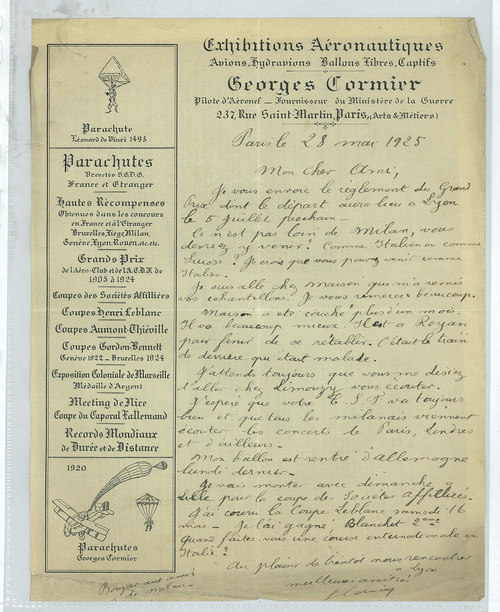 Exhibitions Aéronautiques
Avions, Hydravions Ballons Libres, Captifs
Georges Cormier
Pilote d'Aéronef — Fournisseur du Ministère de la Guerre
237, Rue Saint-Martin, Paris, (Arts & Métiers)
Parachute
Léonard de Vinci 1495
Parachutes
Brevetés S.G.D.G.
France et Etranger
Hautes Récompenses
Obtenues dans les concours
en France et à l'Etranger
Bruxelles, Liège, Milan,
Genève, Lyon, Rouen, etc. etc.
Grands Prix
de l'Aéro-Club et de l'A.C.D.F. de
1905 à 1924
Coupes des Sociétés Affiliées
Coupes Henri Leblanc
Coupes Aumont-Thiéville
Coupes Gordon-Bennett
Genève 1922 — Bruxelles 1924
Exposition Coloniale de Marseille
Médaille d'Argent
Meeting de Nice
Coupe du Caporal Lallemand
Records Mondiaux
de Durée et de Distance
1920
Parachutes
Georges Cormier
Paris le 28 mai 1925
Mon cher Ami,
Je vous envoie le règlement du Grand
Prix dont le départ aura lieu à Lyon
le 5 juillet prochain —
Ce n'est pas loin de Milan, vous
devriez y venir? Comme Italien ou comme
Suisse? Je crois que vous pouvez venir comme
Italien.
Je suis allé chez Maison qui m'a remis
vos échantillons. Je vous remercie beaucoup.
Maison a été couché plus d'un mois.
Il va beaucoup mieux. Il est à Royan
pour finir de se rétablir. C'était le train
de derrière qui était malade.
J'attends toujours que vous me disiez
d'aller chez Limoury vous écouter.
J'espère que votre T.S.F va toujours
bien et que tous les milanais viennent
écouter les concerts de Paris, Londres
et d'ailleurs.
Mon ballon est rentré d'Allemagne
lundi dernier —
Je vais monter avec dimanche à
Lille pour la coupe des Societés affilliées.
J'ai couru la Coupe Leblanc samedi 16
mai — Je l'ai gagné, Blanchet 2ème
quand faites vous une course internationale en
Italie?
Au plaisir de bientôt nous rencontrer
à Lyon
meilleures amitiés
G Cormier
Bonjour aux amis
de Milan —